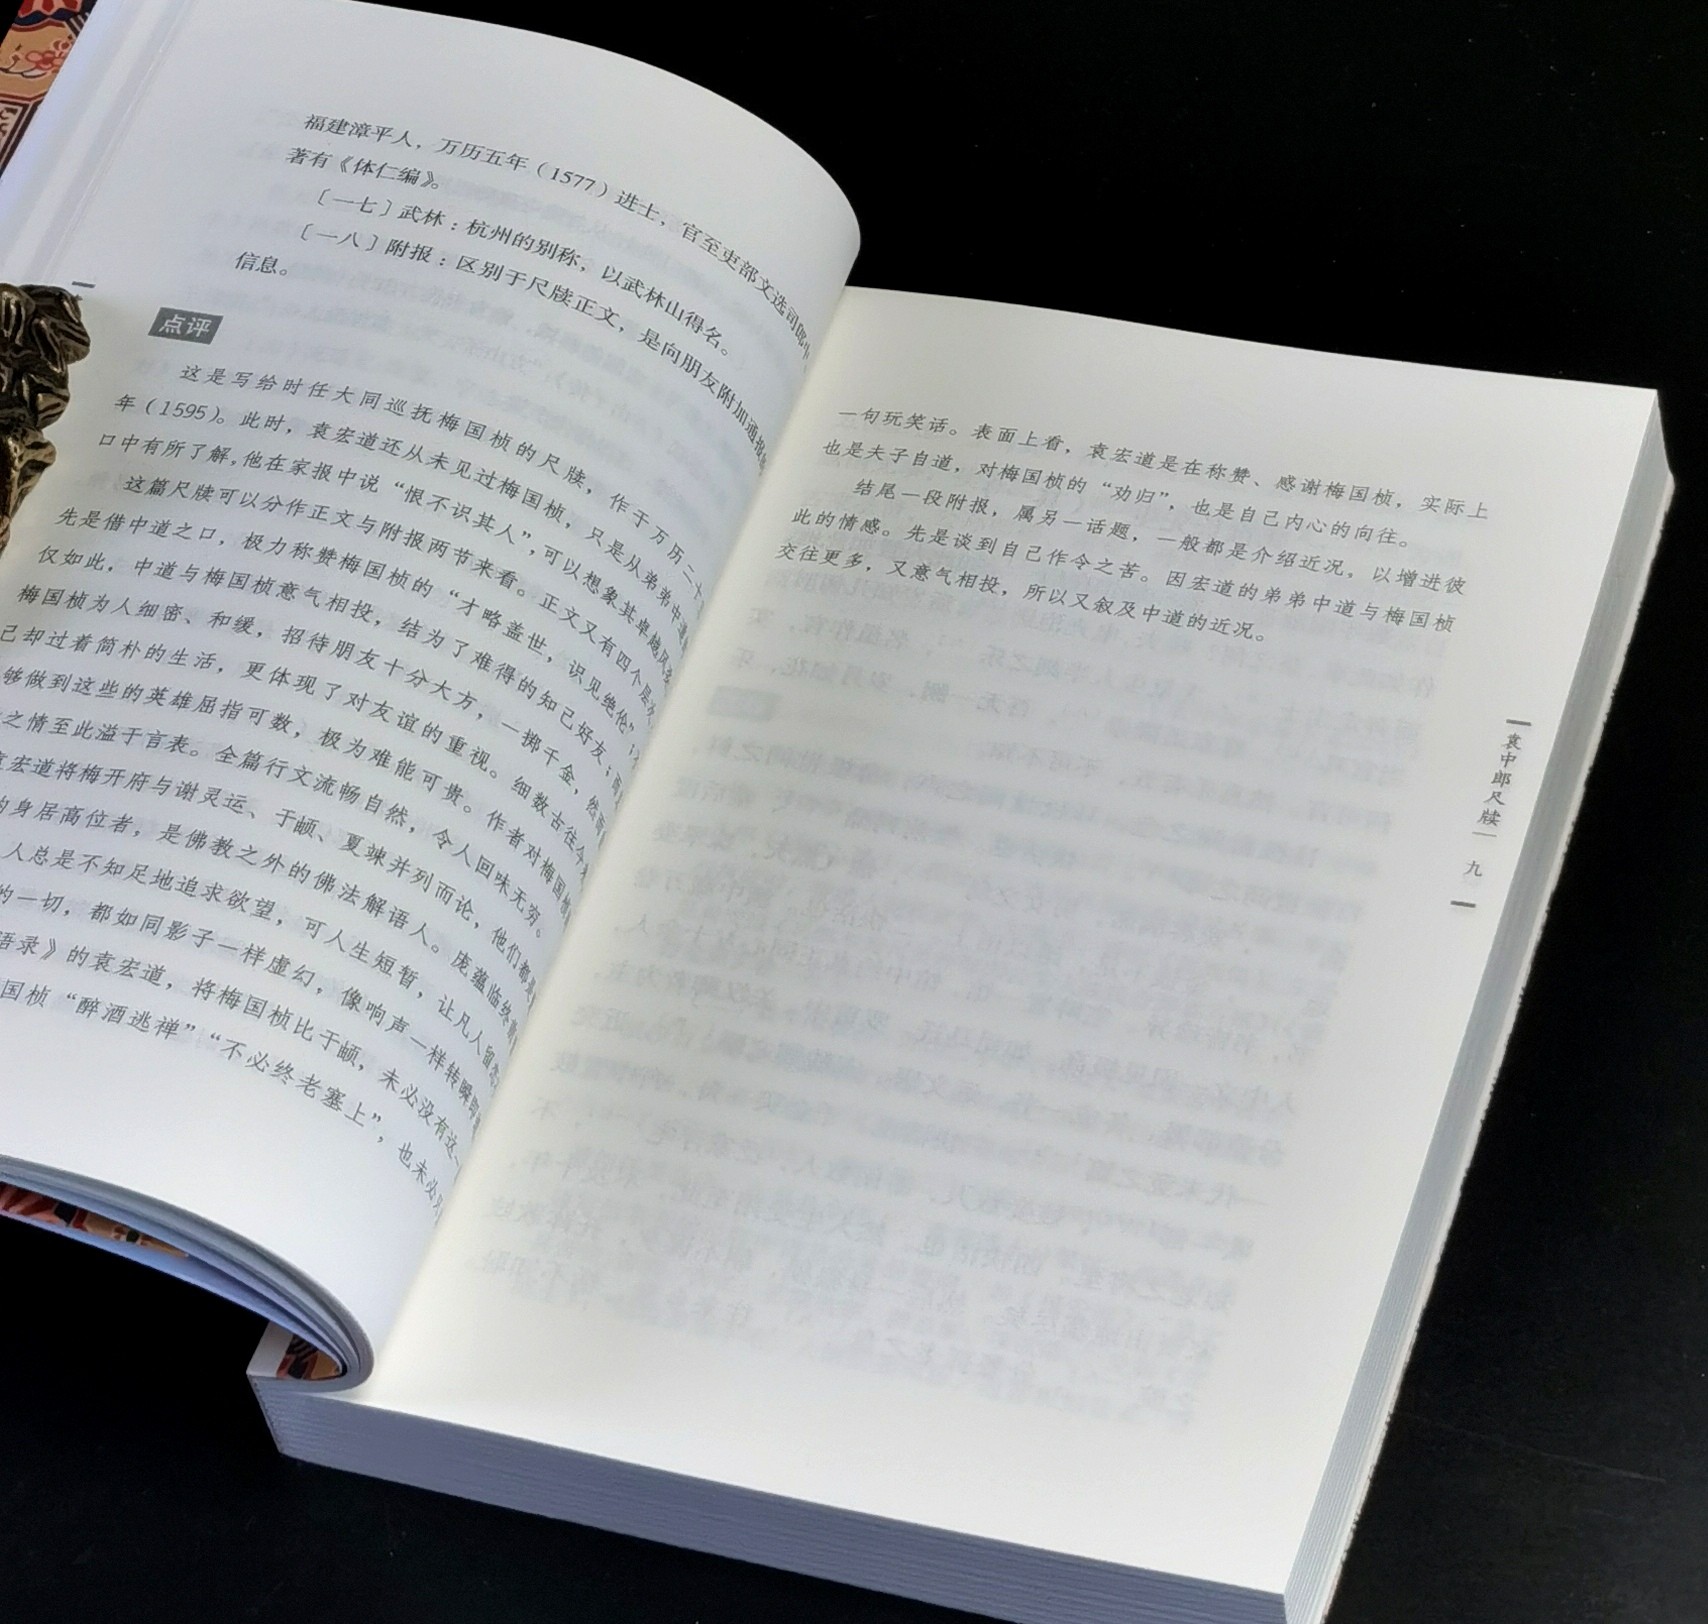 福建漳平人，万历五年（1577）进士，官至吏部文选司郎中
著有《体仁编》。
〔一七〕武林：杭州的别称，以武林山得名。
〔一八〕附报：区别于尺牍正文，是向朋友附加通报
信息。
点评
这是写给时任大同巡抚梅国桢的尺牍，作于万历二十
年（1595）。此时，袁宏道还从未见过梅国桢，只是从弟弟中道
口中有所了解，他在家报中说“恨不识其人”，可以想象其卓越风
这篇尺牍可以分作正文与附报两节来看。正文又有四个层次
先是借中道之口，极力称赞梅国桢的“才略盖世，识见绝伦”
仅如此，中道与梅国桢意气相投，结为了难得的知己好友；而
梅国桢为人细密、和缓，招待朋友十分大方，一掷千金，然而
己却过着简朴的生活，更体现了对友谊的重视。细数古往今
够做到这些的英雄屈指可数，极为难能可贵。作者对梅国桢
之情至此溢于言表。全篇行文流畅自然，令人回味无穷。
宏道将梅开府与谢灵运、于頔、夏竦并列而论，他们都是
的身居高位者，是佛教之外的佛法解语人。庞蕴临终
人总是不知足地追求欲望，可人生短暂，让凡人留恋
的一切，都如同影子一样虚幻，像响声一样转瞬即
语录》的袁宏道，将梅国桢比于頔，未必没有这
国桢“醉酒逃禅”“不必终老塞上”，也未必只
一句玩笑话。表面上看，袁宏道是在称赞、感谢梅国桢，实际上
也是夫子自道，对梅国桢的“劝归”，也是自己内心的向往。
结尾一段附报，属另一话题，一般都是介绍近况，以增进彼
此的情感。先是谈到自己作令之苦。因宏道的弟弟中道与梅国桢
交往更多，又意气相投，所以又叙及中道的近况。
袁中郎尺牍
九